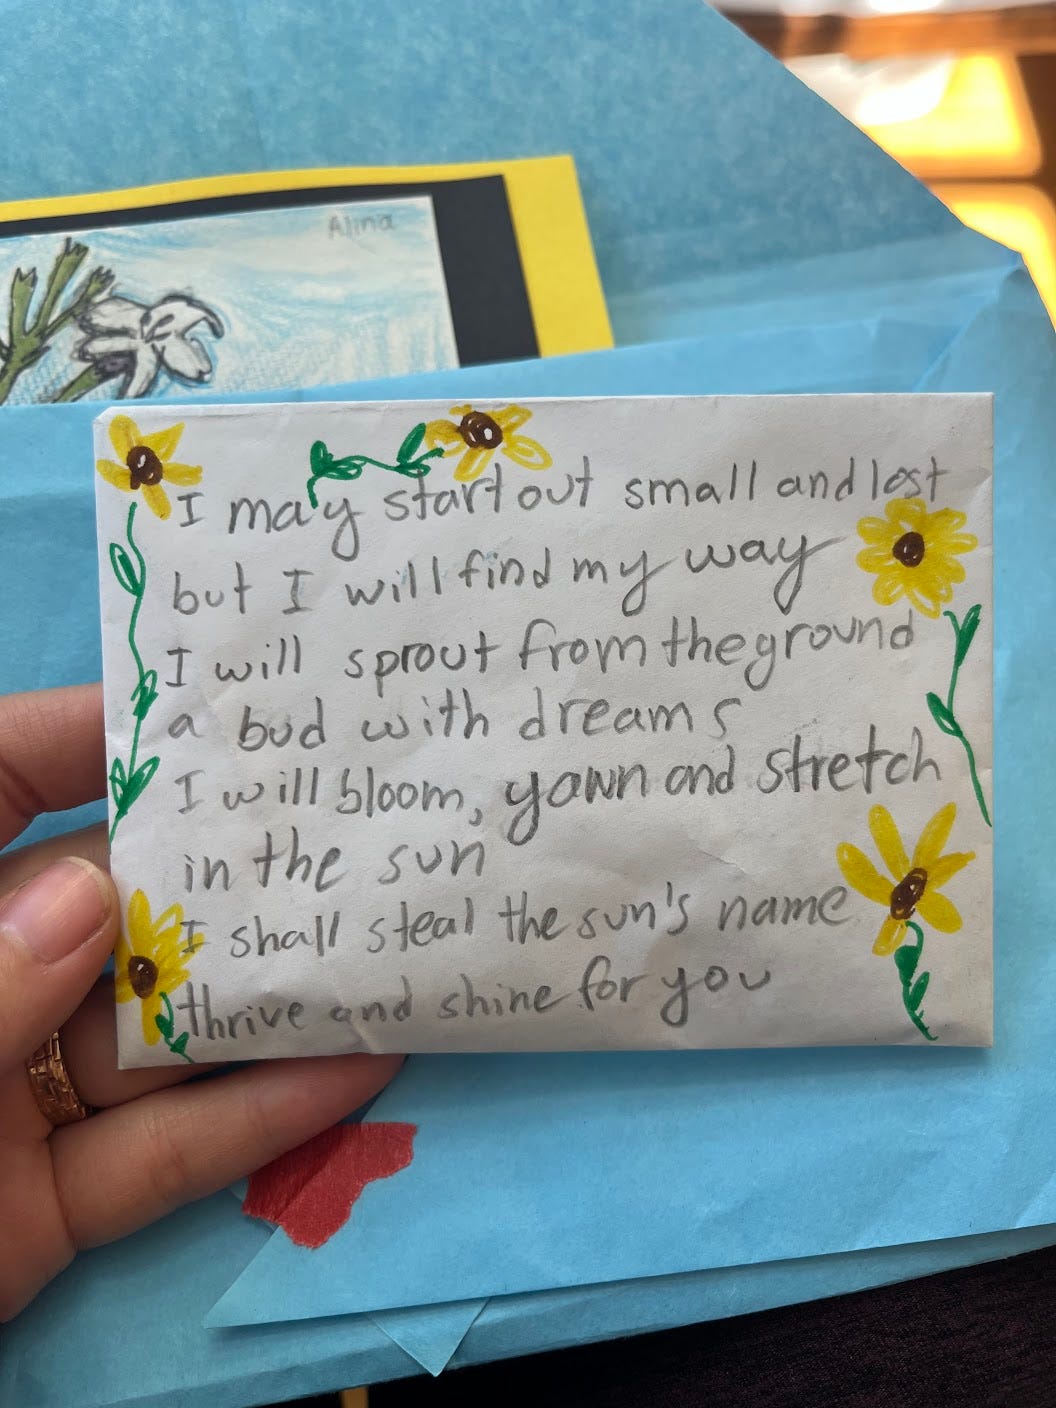 Alina
I may start out small and lost
but I will find my way
I will sprout from the ground
a bud with dreams
I will bloom, yawn and stretch
in the sun
I shall steal the sun's name
thrive and shine for you